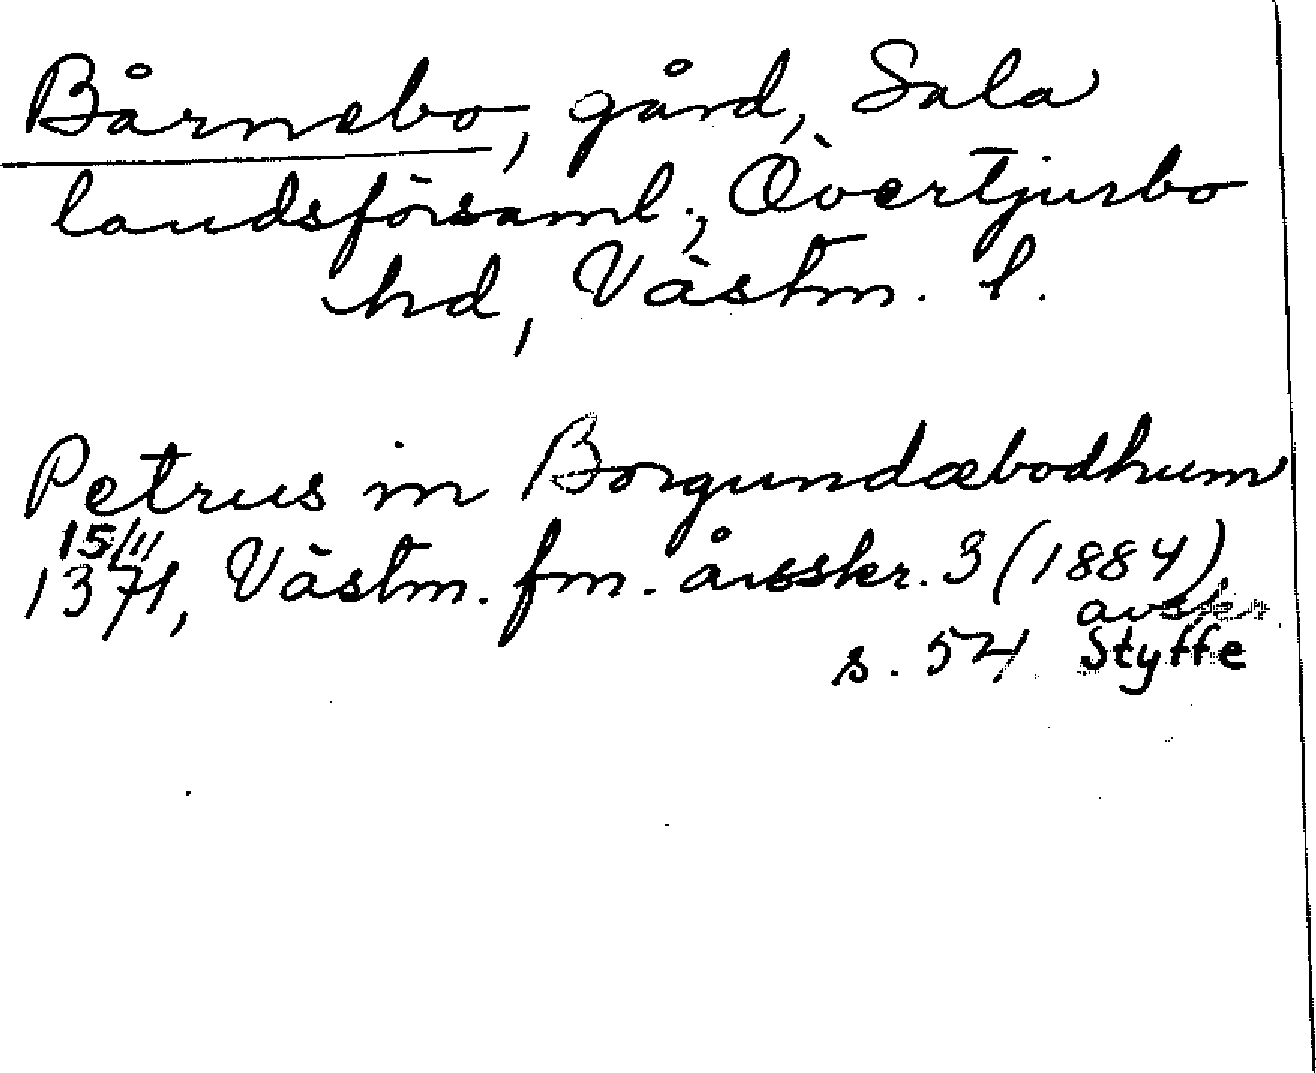 Bårnebo, gård, Sala
landsförsaml., Övertjurbo
hd, Västm. l.
Petrus in Borgundæbodhum
15/11
1371, Västm. fm. årsskr. 3 (1884),
avskr.
s. 54 Styffe